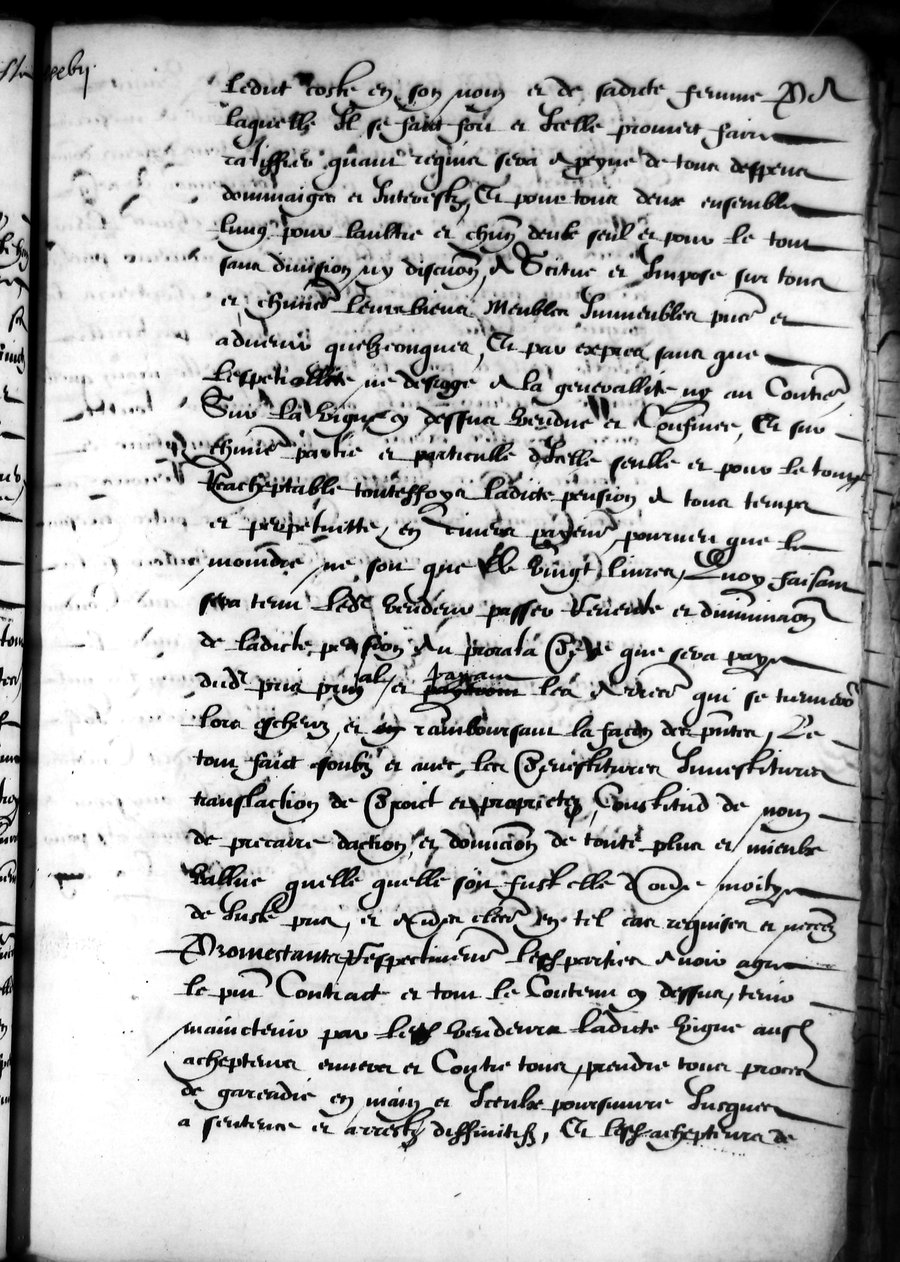 ledict coste en son nom et de sadicte femme Pour
laquelle Il se faict fort et Icelle promect faire
ratiffier quant requis sera A peyne de tous despens
dommaiges et Interestz, Et pour tous deux ensemble
lung pour laultre et chūn deulx seul et pour le tout
sans division ny discution, A Scitue et Impose sur tous
et chūns leurs biens Meubles Immeubles pntz et
advenir quelzconques, Et par expres sans que
lespeciallite ne desroge A la generallite ny au Contre
Sur la vigne cy dessus vendue et Confinee, Et sur
chūne partie et particulle dIcelle seulle et pour le tout
Reacheptable touteffoys ladicte pension A tous temps
et perpetuitte, en divers payemens, pourveu que le
moindre ne soit que de vingt livres, Quoy faisant
sera tenu led vendeur passer Revente et diminution
de ladicte pension Au prorata de ce que sera paye
dud pris prinpal, et payant les Arreraiges qui se trouveront
lors escheuz, et ramboursant la façon des pntes, Le
tout faict soubz et avec les Devestitures Investitures
translaction de Droict et proprietez, Constitud de nom
de precaire daction, et donnation de toute plus et mieulx
vallue quelle quelle soit fust elle Oultre moitye
de Juste pris, et Aultres claus en tel cas requises et necess
Promectants Respectivement lesd parties Avoir agre
le pnt Contract et tout le Contenu cy dessus, tenir
maintenir par lesd vendeurs ladicte vigne ausd
achepteurs envers et Contre tous, prendre tous proces
de garendie en main et Iceulx poursuivre Jusques
a sentence et arrestz diffinitifz, Et lesd achepteurs de